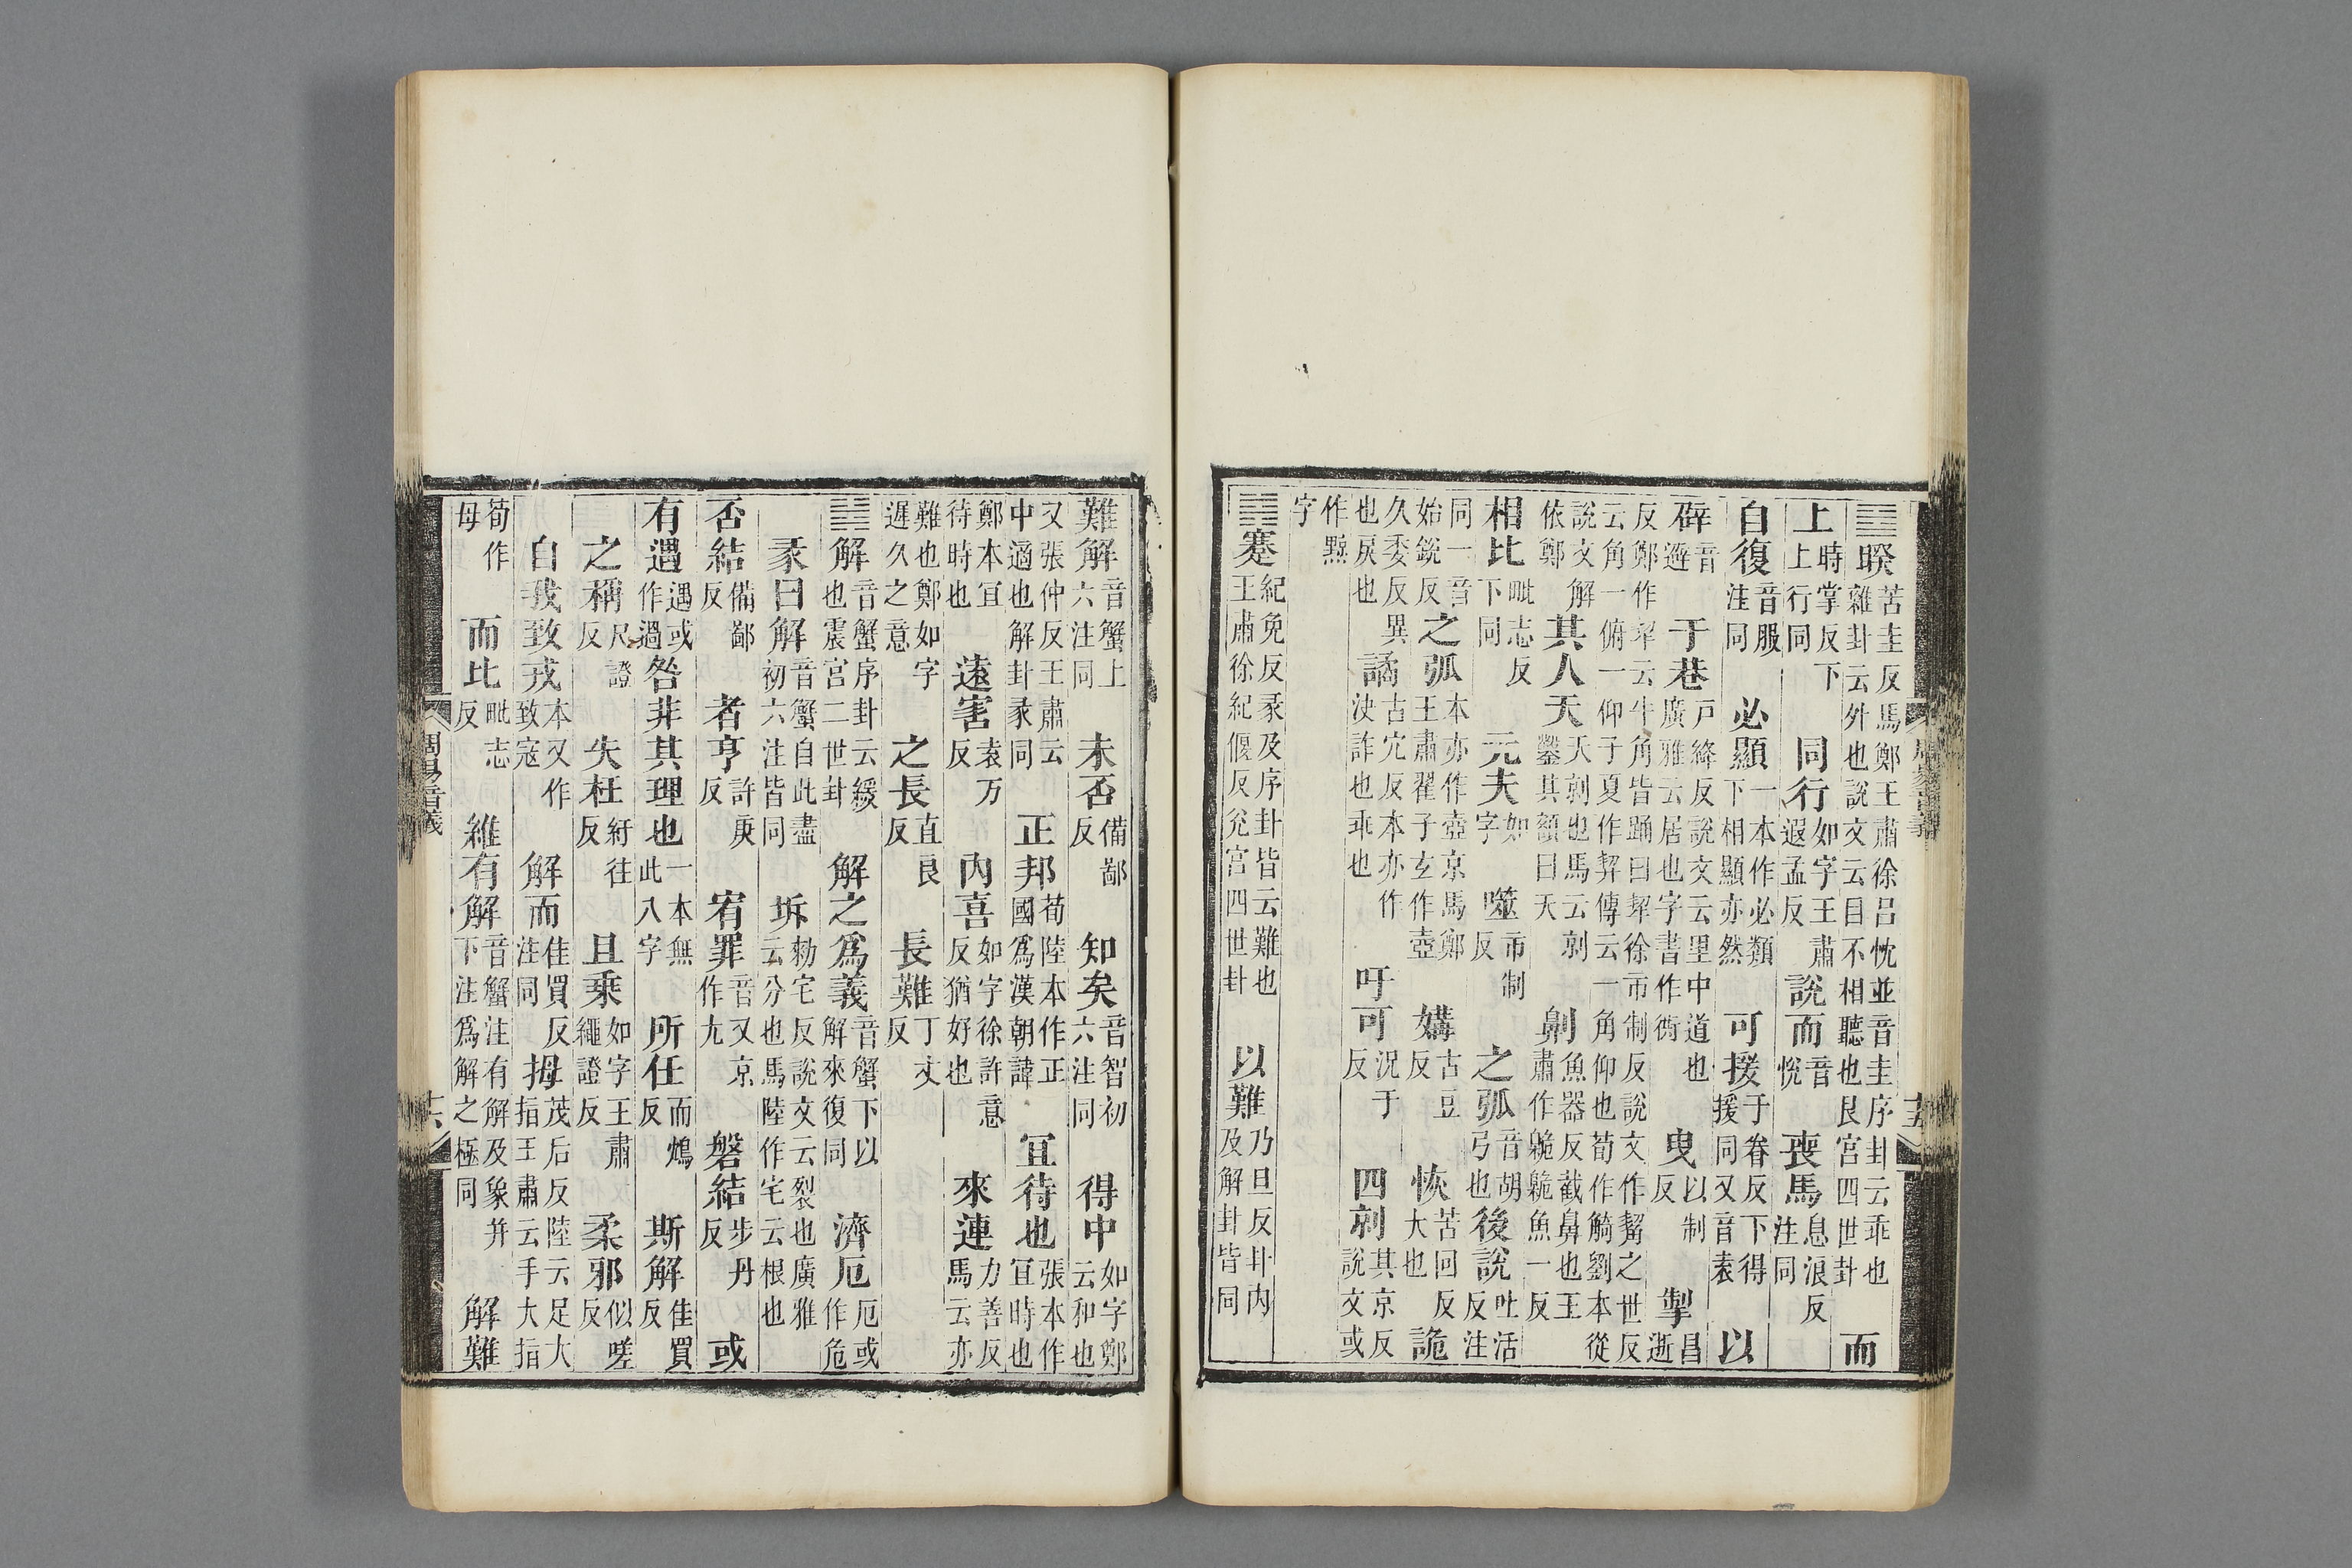 ䷥睽苦圭反馬鄭王肅徐呂忱並音圭序卦云乖也雜卦云外也說文云目不相聽也艮宮四世卦 而
上時掌反下上行同 同行如字王肅遐孟反 說而音悅 喪馬息浪反注同
自復音服注同 必顯一本作必類下相顯亦然 可援于眷反下得援同又音袁 以
辟音避 于巷戶絳反說文云里中道也廣雅云居也字書作衖 曳以制反 掣昌逝
反鄭作挈云牛角皆踊曰挈徐市制反說文作觢之世反云角一俯一仰子夏作契傳云一角仰也荀作觭劉本從
說文解依鄭 其人天天剠也馬云剠鑿其額曰天 劓魚器反截鼻也王肅作臲臲魚一反
相比毗志反下同 元夫如字 噬市制反 之弧音胡弓也 後說吐活反注
同一音始銳反 之弧本亦作壺京馬鄭王肅翟子玄作壺 媾古豆反 恢苦回反大也 詭
久委反異也戾也 譎古穴反本亦作決詐也乖也 吁可況于反 四剠其京反說文或
作黥字
䷦蹇紀免反彖及序卦皆云難也王肅徐紀偃反兌宮四世卦 以難乃旦反卦內及解卦皆同
難解音蟹上六注同 未否備鄙反 知矣音智初六注同 得中如字鄭云和也
又張仲反王肅云中適也解卦彖同 正邦荀陸本作正國爲漢朝諱 宜待也張本作宜時也
鄭本宜待時也 遠害袁万反 內喜如字徐許意反猶好也 來連力善反馬云亦
難也鄭如字遲久之意 之長直良反 長難丁丈反
䷧解音蟹序卦云緩也震宮二世卦 解之爲義音蟹下以解來復同 濟厄厄或作危
彖曰解音蟹自此盡初六注皆同 坼勑宅反說文云裂也廣雅云分也馬陸作宅云根也
否結備鄙反 者亨許庚反 宥罪音又京作尤 磐結步丹反 或
有遇遇或作過 咎非其理也一本無此八字 所任而鴆反 斯解佳買反
之稱尺證反 失枉紆往反 且乘如字王肅繩證反 柔邪似嗟反
自我致戎本又作致寇 解而佳買反注同 拇茂后反陸云足大指王肅云手大指
荀作母 而比毗志反 維有解音蟹注有解及象并下注爲解之極同 解難
周易音義
十六
十五